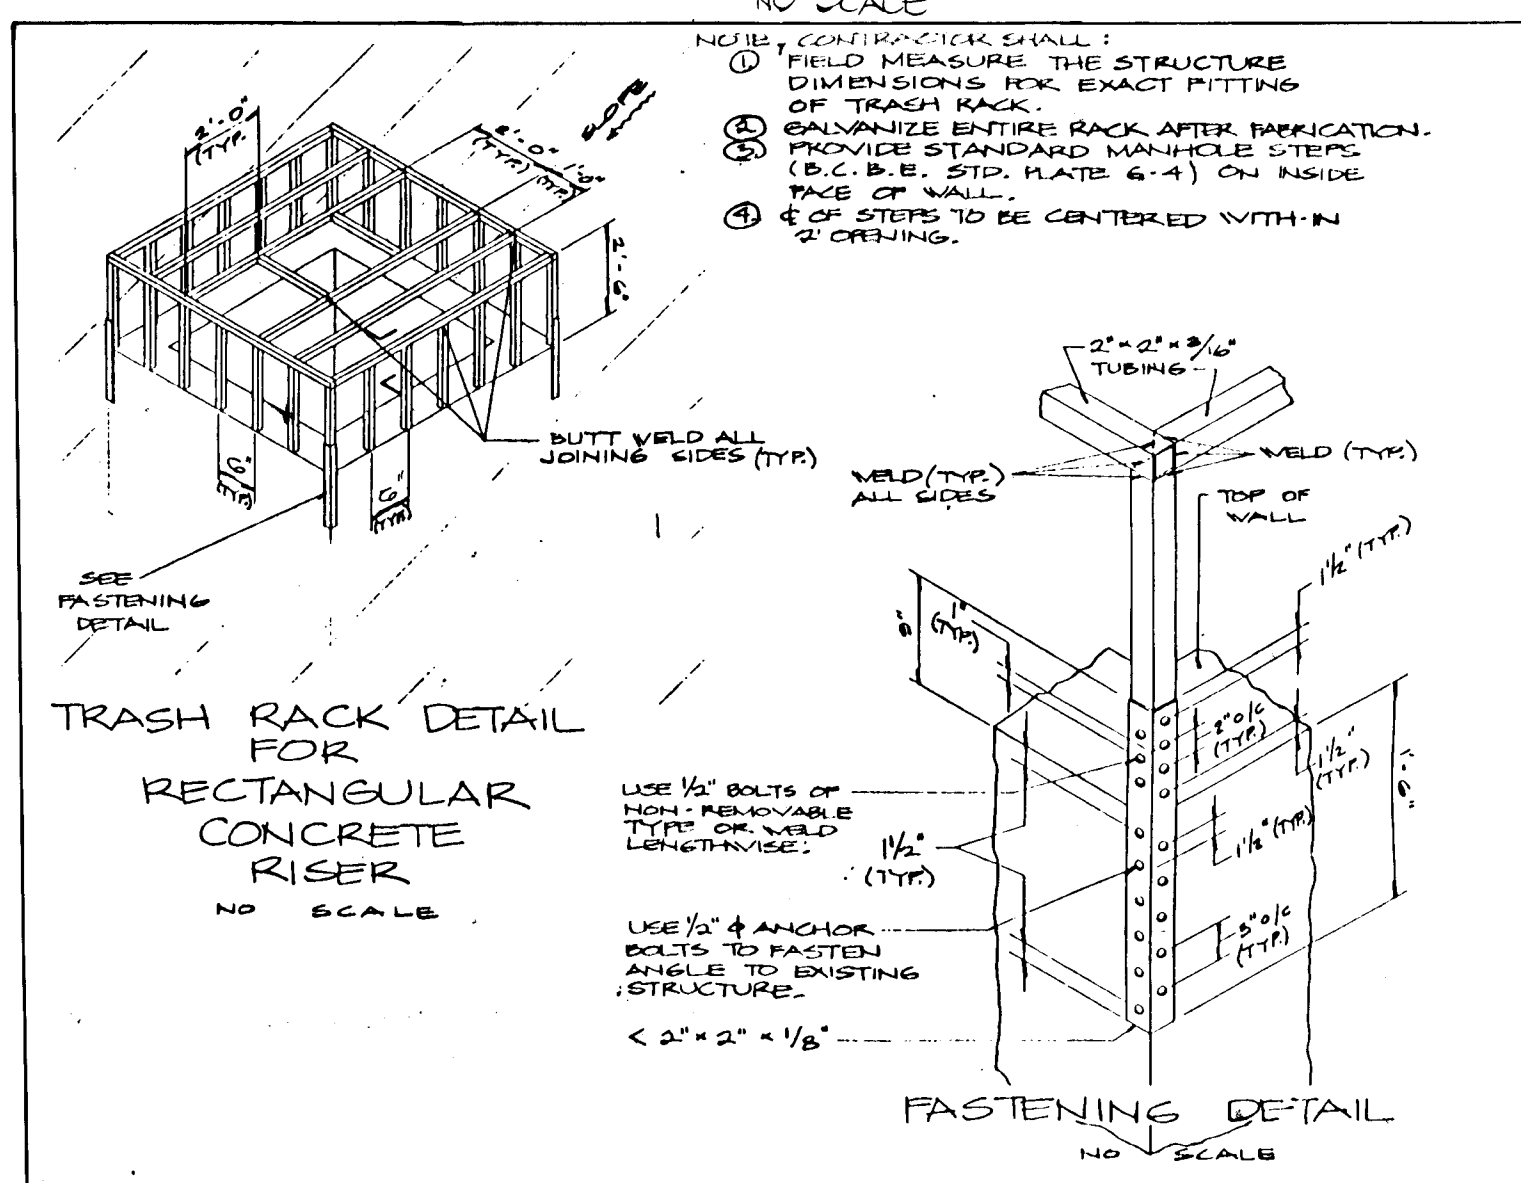 NO SCALE
NOTE, CONTRACTOR SHALL:
① FIELD MEASURE THE STRUCTURE
DIMENSIONS FOR EXACT FITTING
OF TRASH RACK.
② GALVANIZE ENTIRE RACK AFTER FABRICATION.
③ PROVIDE STANDARD MANHOLE STEPS
(B.C.B.E. STD. PLATE G-4) ON INSIDE
FACE OF WALL.
④ ℄ OF STEPS TO BE CENTERED WITH-IN
2' OPENING.
2'-0"
(TYP.
2'-0"
(TYP.)
1'-0"
(TYP.)
SLOPE
2'-6"
BUTT WELD ALL
JOINING SIDES (TYP.)
6"
(TYP.)
6"
(TYP.)
SEE
FASTENING
DETAIL
TRASH RACK DETAIL
FOR
RECTANGULAR
CONCRETE
RISER
NO SCALE
2" x 2" x 3/16"
TUBING
WELD (TYP.)
ALL SIDES
WELD (TYP.)
TOP OF
WALL
1½" (TYP.)
1"
(TYP.)
2" O/C
(TYP.)
1½"
(TYP.)
USE ½" BOLTS OF
NON-REMOVABLE
TYPE OR WELD
LENGTHWISE.
1½"
(TYP.)
1½" (TYP.)
USE ½" ϕ ANCHOR
BOLTS TO FASTEN
ANGLE TO EXISTING
STRUCTURE.
3" O/C
(TYP.)
< 2" x 2" x 1/8"
FASTENING DETAIL
NO SCALE